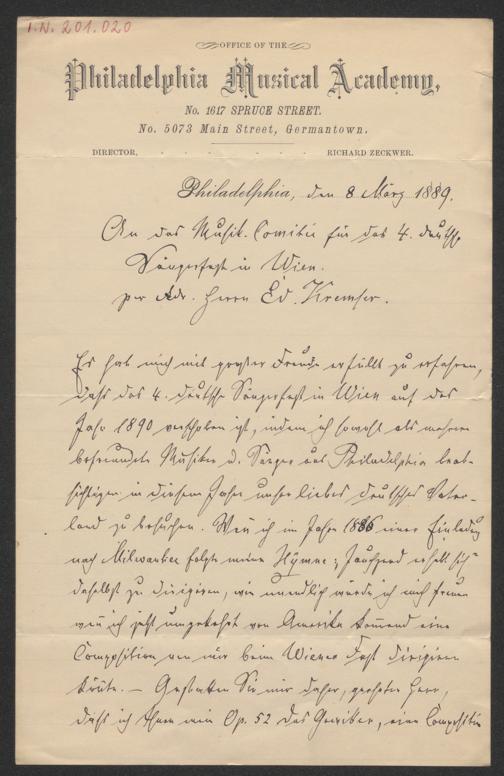 I.N. 201.020
OFFICE OF THE
Philadelphia Musical Academy,
No. 1617 SPRUCE STREET.
No. 5073 Main Street, Germantown.
DIRECTOR, RICHARD ZECKWER.
Philadelphia, den 8 März 1889.
An das Musik. Comitée für das 4. deutsche
Sängerfest in Wien.
per Adr. Herrn Ed. Kremser.
Es hat mich mit großer Freude erfüllt zu erfahren,
daß das 4. deutsche Sängerfest in Wien auf das
Jahr 1890 verschoben ist, indem ich sowohl als mehrere
befreundete Musiker u. Sänger aus Philadelphia beab-
sichtigen in diesem Jahre unser liebes deutsches Vater-
land zu besuchen. Wenn ich im Jahre 1886 einer Einladung
nach Milwaukee folgte meine Hymne: Jauchzend erhebt sich
daselbst zu dirigiren, wie unendlich würde ich mich freuen
wenn ich jetzt umgekehrt von Amerika kommend eine
Composition von mir beim Wiener Fest dirigiren
könnte. — Gestatten Sie mir daher, geehrter Herr,
daß ich Ihnen mein Op. 52 Das Gewitter, eine Composition